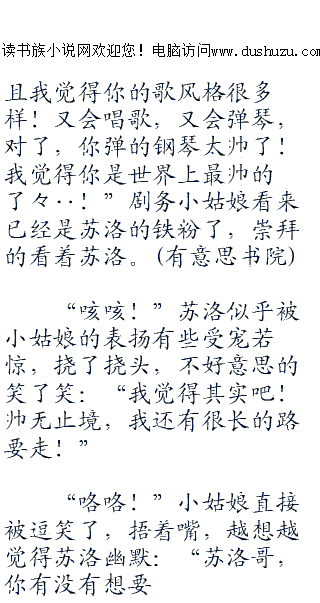 读书族小说网欢迎您！电脑访问www.dushuzu.com
且我觉得你的歌风格很多
样！又会唱歌，又会弹琴，
对了，你弹的钢琴太帅了！
我觉得你是世界上最帅的
了々··！”剧务小姑娘看来
已经是苏洛的铁粉了，崇拜
的看着苏洛。(有意思书院)
“咳咳！”苏洛似乎被
小姑娘的表扬有些受宠若
惊，挠了挠头，不好意思的
笑了笑：“我觉得其实吧！
帅无止境，我还有很长的路
要走！”
“咯咯！”小姑娘直接
被逗笑了，捂着嘴，越想越
觉得苏洛幽默：“苏洛哥，
你有没有想要